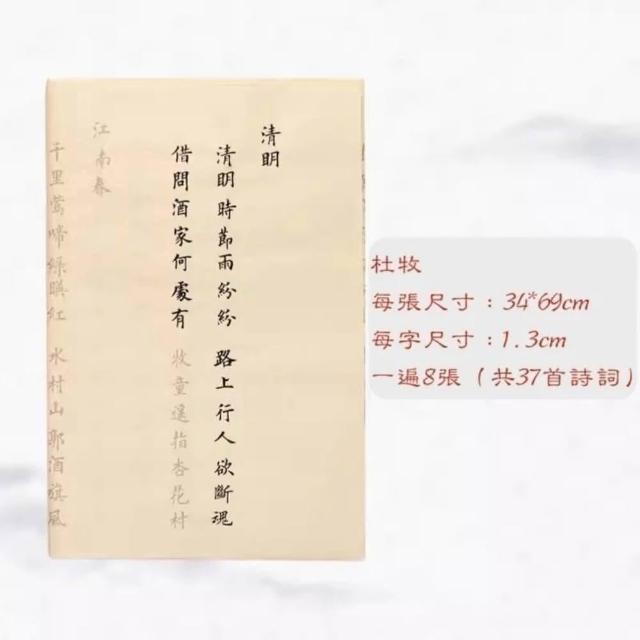 清明
清明時節雨紛紛 路上行人欲斷魂
借問酒家何處有 牧童遥指杏花村
江南春
千里鶯啼綠暎紅 水村山郭酒旗風
杜牧
每張尺寸：34*69cm
每字尺寸：1.3cm
一遍8張（共37首詩詞）